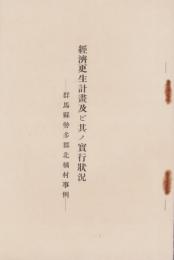 經濟更生計畫及ビ其ノ實行狀況
——群馬縣勢多郡北橘村事例——